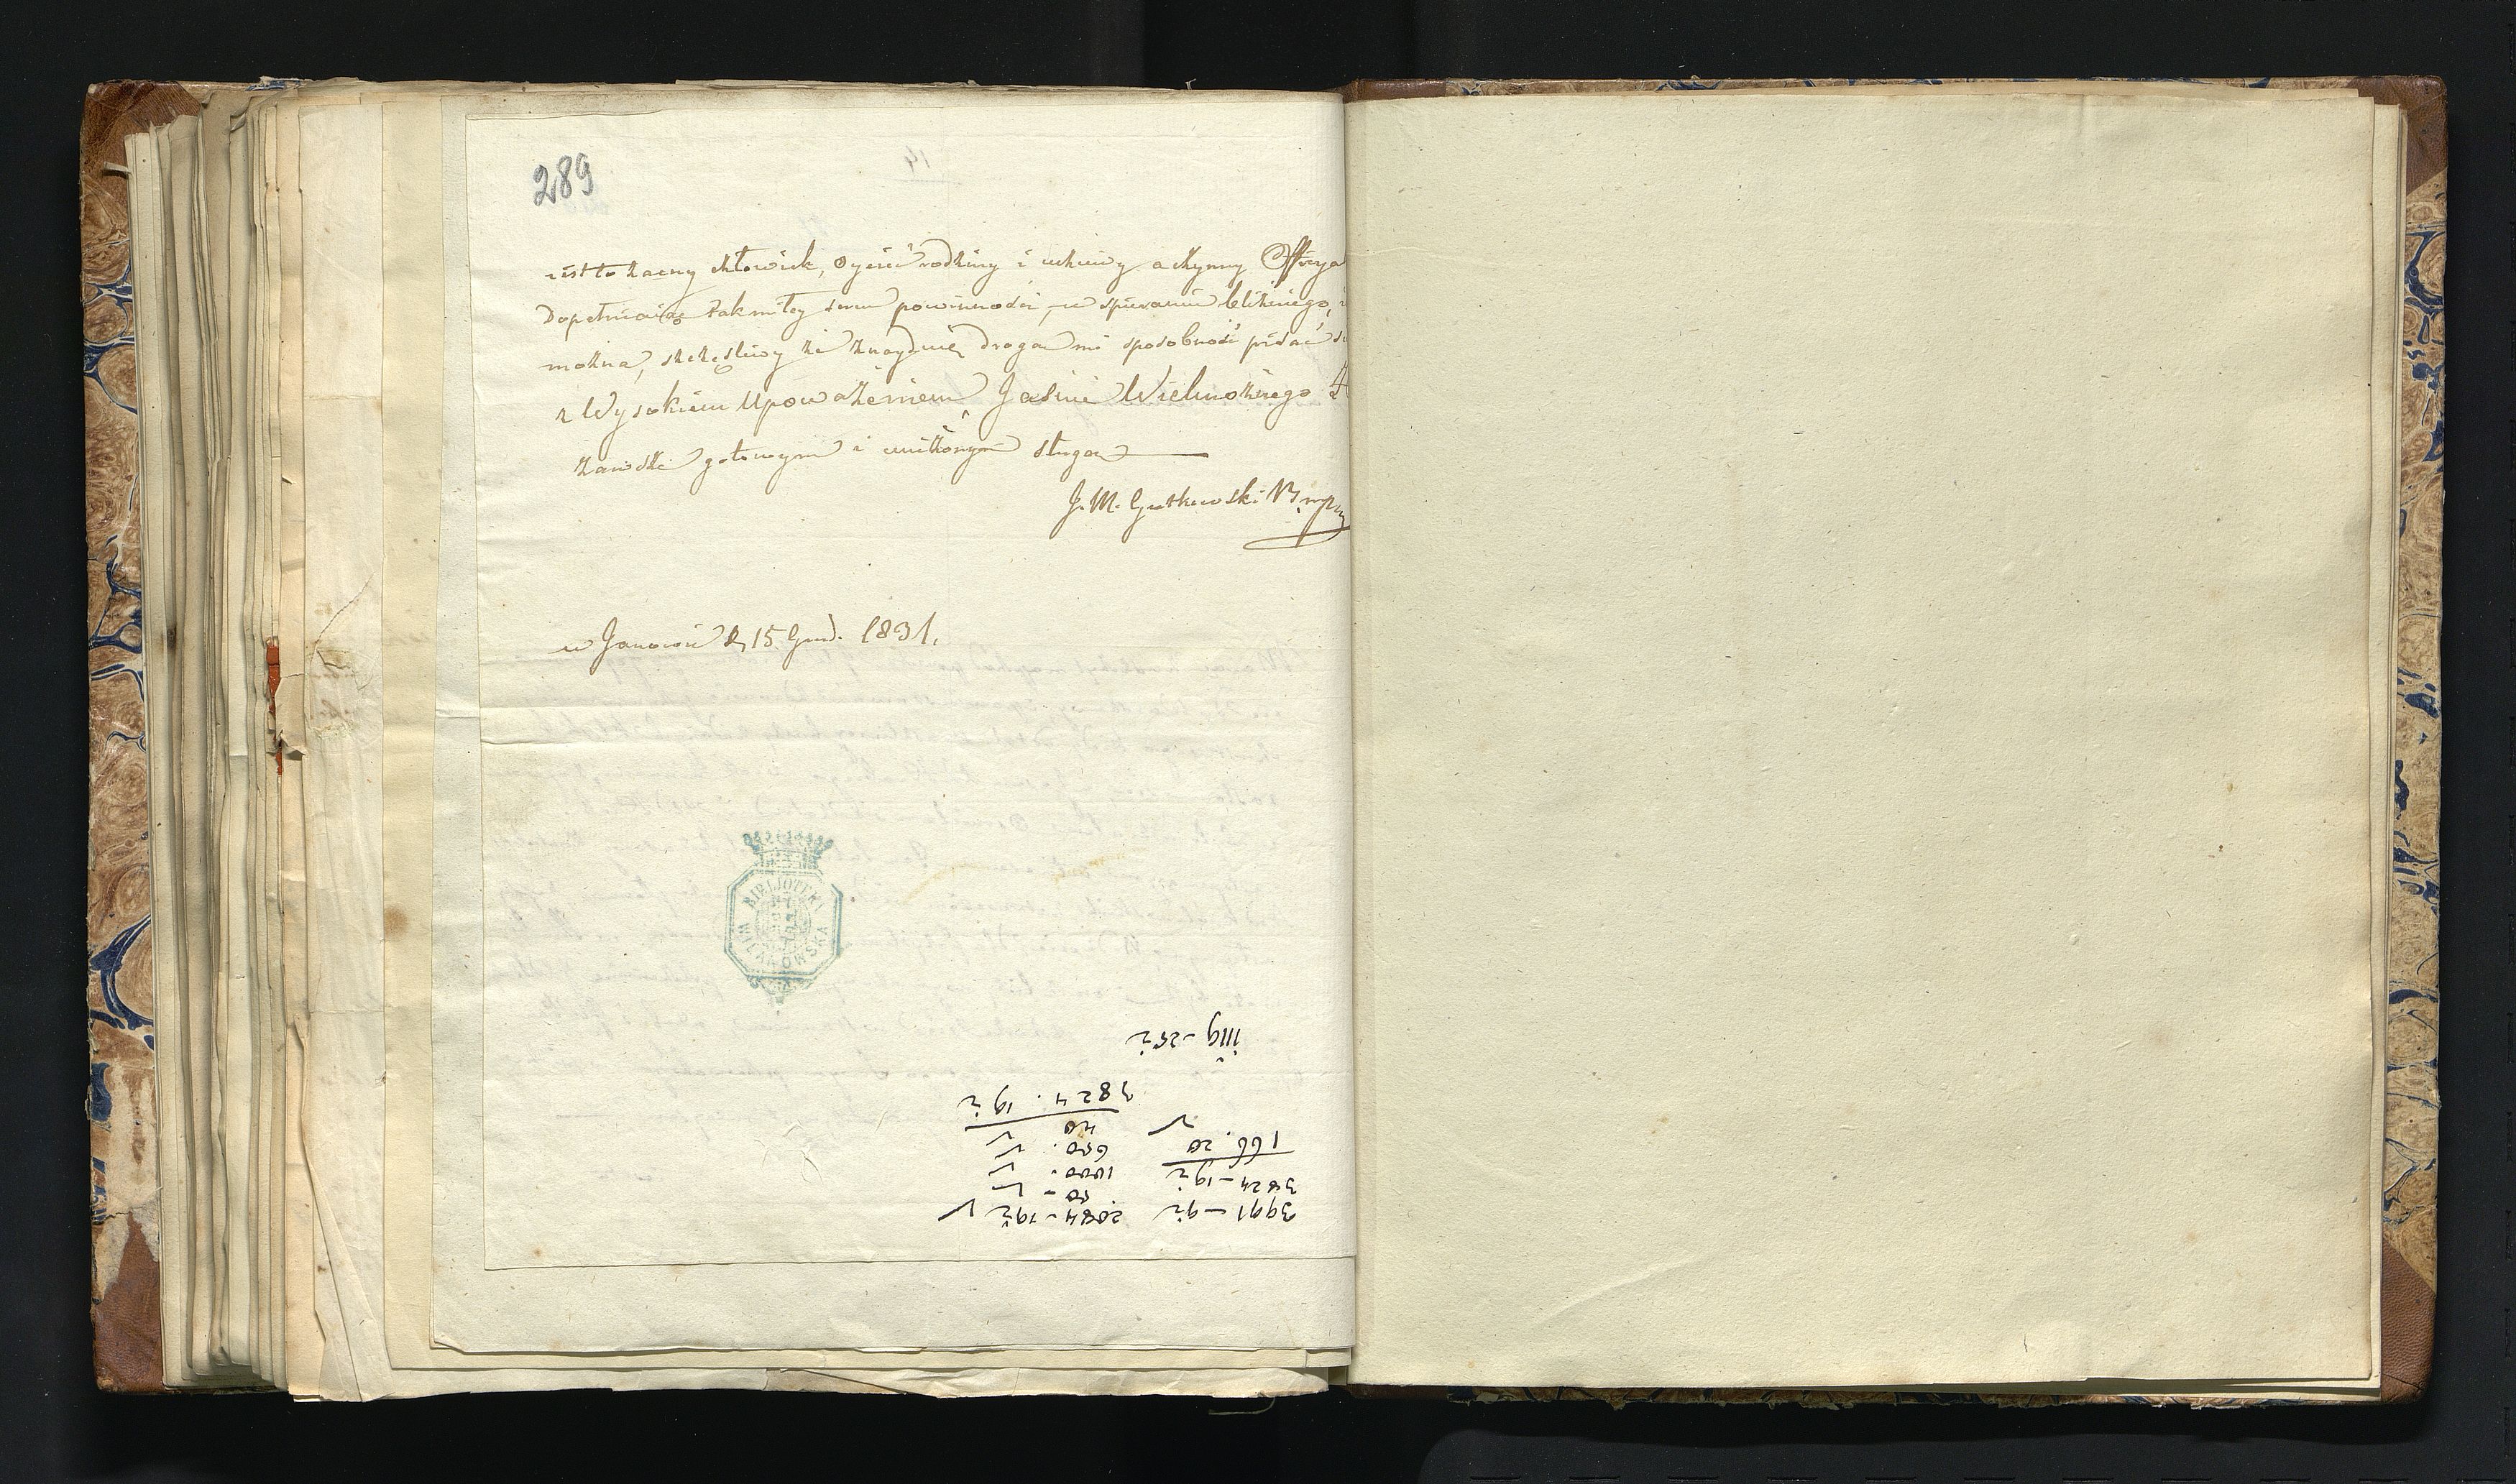 289
iest to zacny człowiek, oyciec rodziny i uczciwy a czynny Officya
Dopełniaiąc tak miłey sercu powinności, w spieraniu bliźniego, i
można, szczęśliwy że znayduię drogą mi sposobność pisać
z Wysokiem Upoważeniem Jaśnie Wielmożnego
zawsze gotowym i uniżonym sługą
J. M. Gutkowski B. mpr
w Janowie d, 15 Grud. 1831.
BIBLIOTEKI
WILANOWSKA
3991 - 9½
3824 - 19½
166. 20
2084 - 19½
50 -
1000.
650.
40
3824. 19½